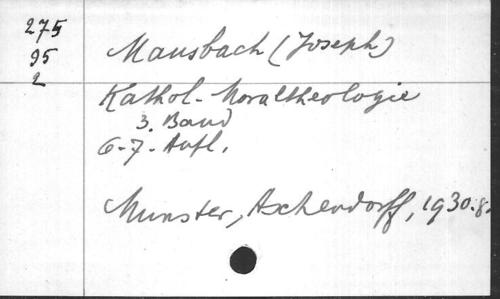 275
95
2
Mausbach (Joseph)
Kathol. Moraltheologie
3. Band
6-7. Aufl.
Munster, Aschendorff, 1930.8.